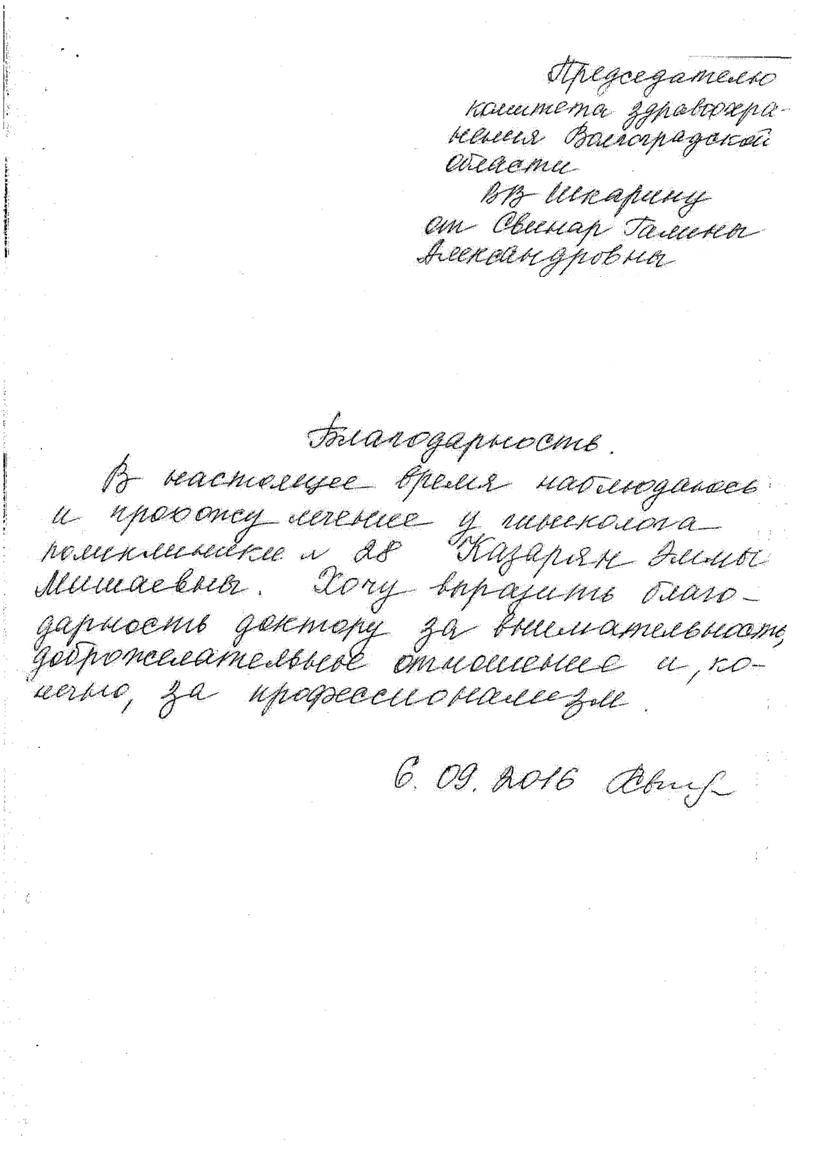 Председателю
комитета здравоохра-
нения Волгоградской
области
ВВ Шкарину
от Свинар Галины
Александровны
Благодарность.
В настоящее время наблюдаюсь
и прохожу лечение у гинеколога
поликлиники № 28 Казарян Эммы
Мишаевны. Хочу выразить благо-
дарность доктору за внимательность,
доброжелательное отношение и, ко-
нечно, за профессионализм.
6. 09. 2016